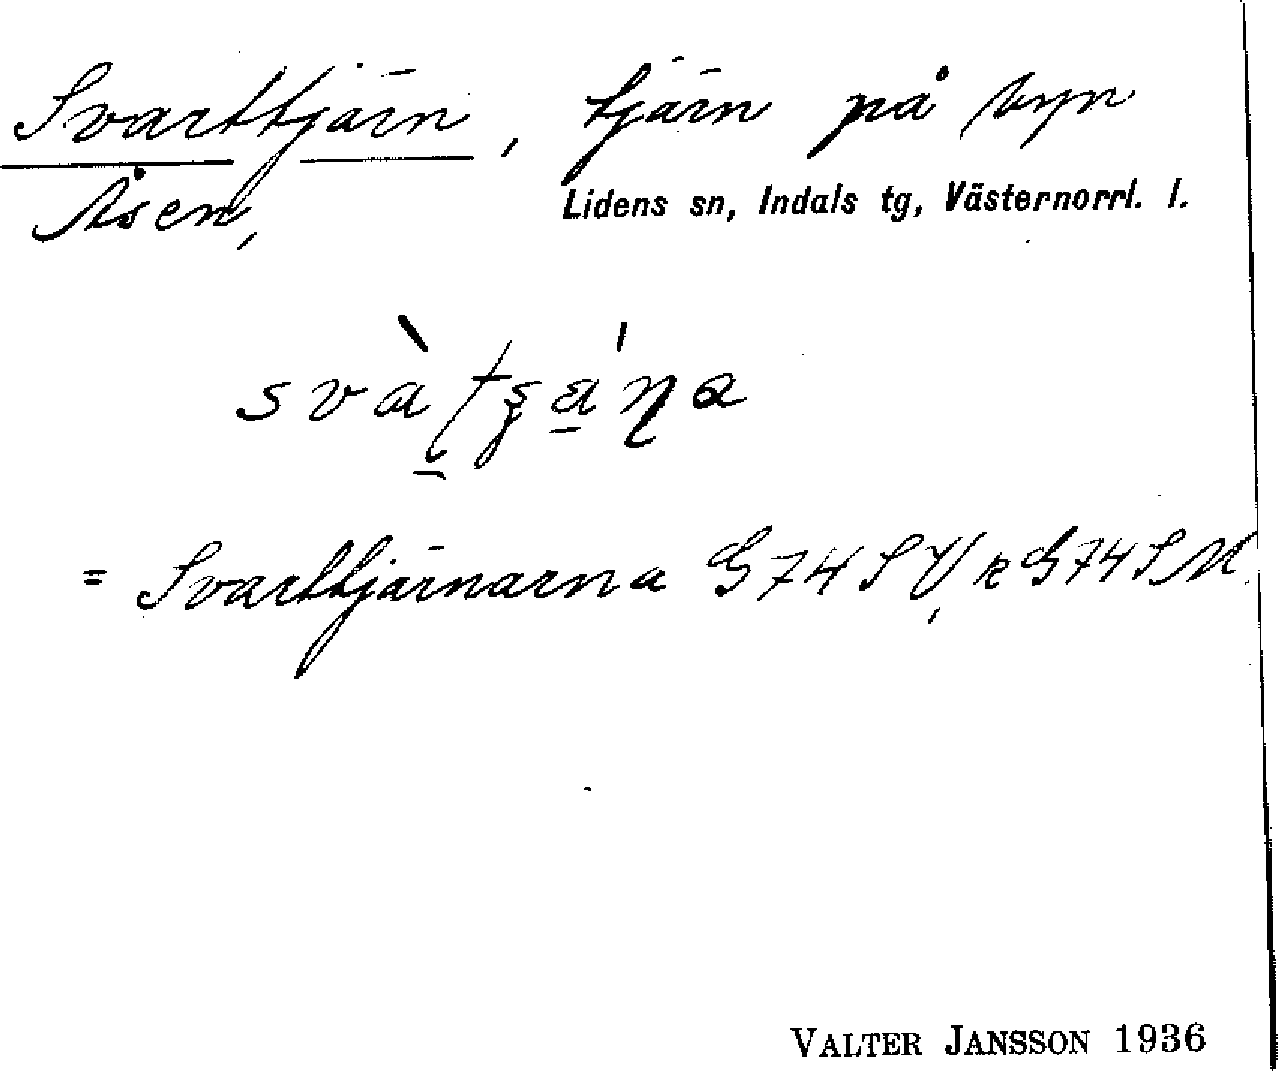 Svarttjärn, tjärn på byn
Åsen, Lidens sn, Indals tg, Västernorrl. l.
= Svarttjärnarna G74SV, k G74SM.
VALTER JANSSON 1936